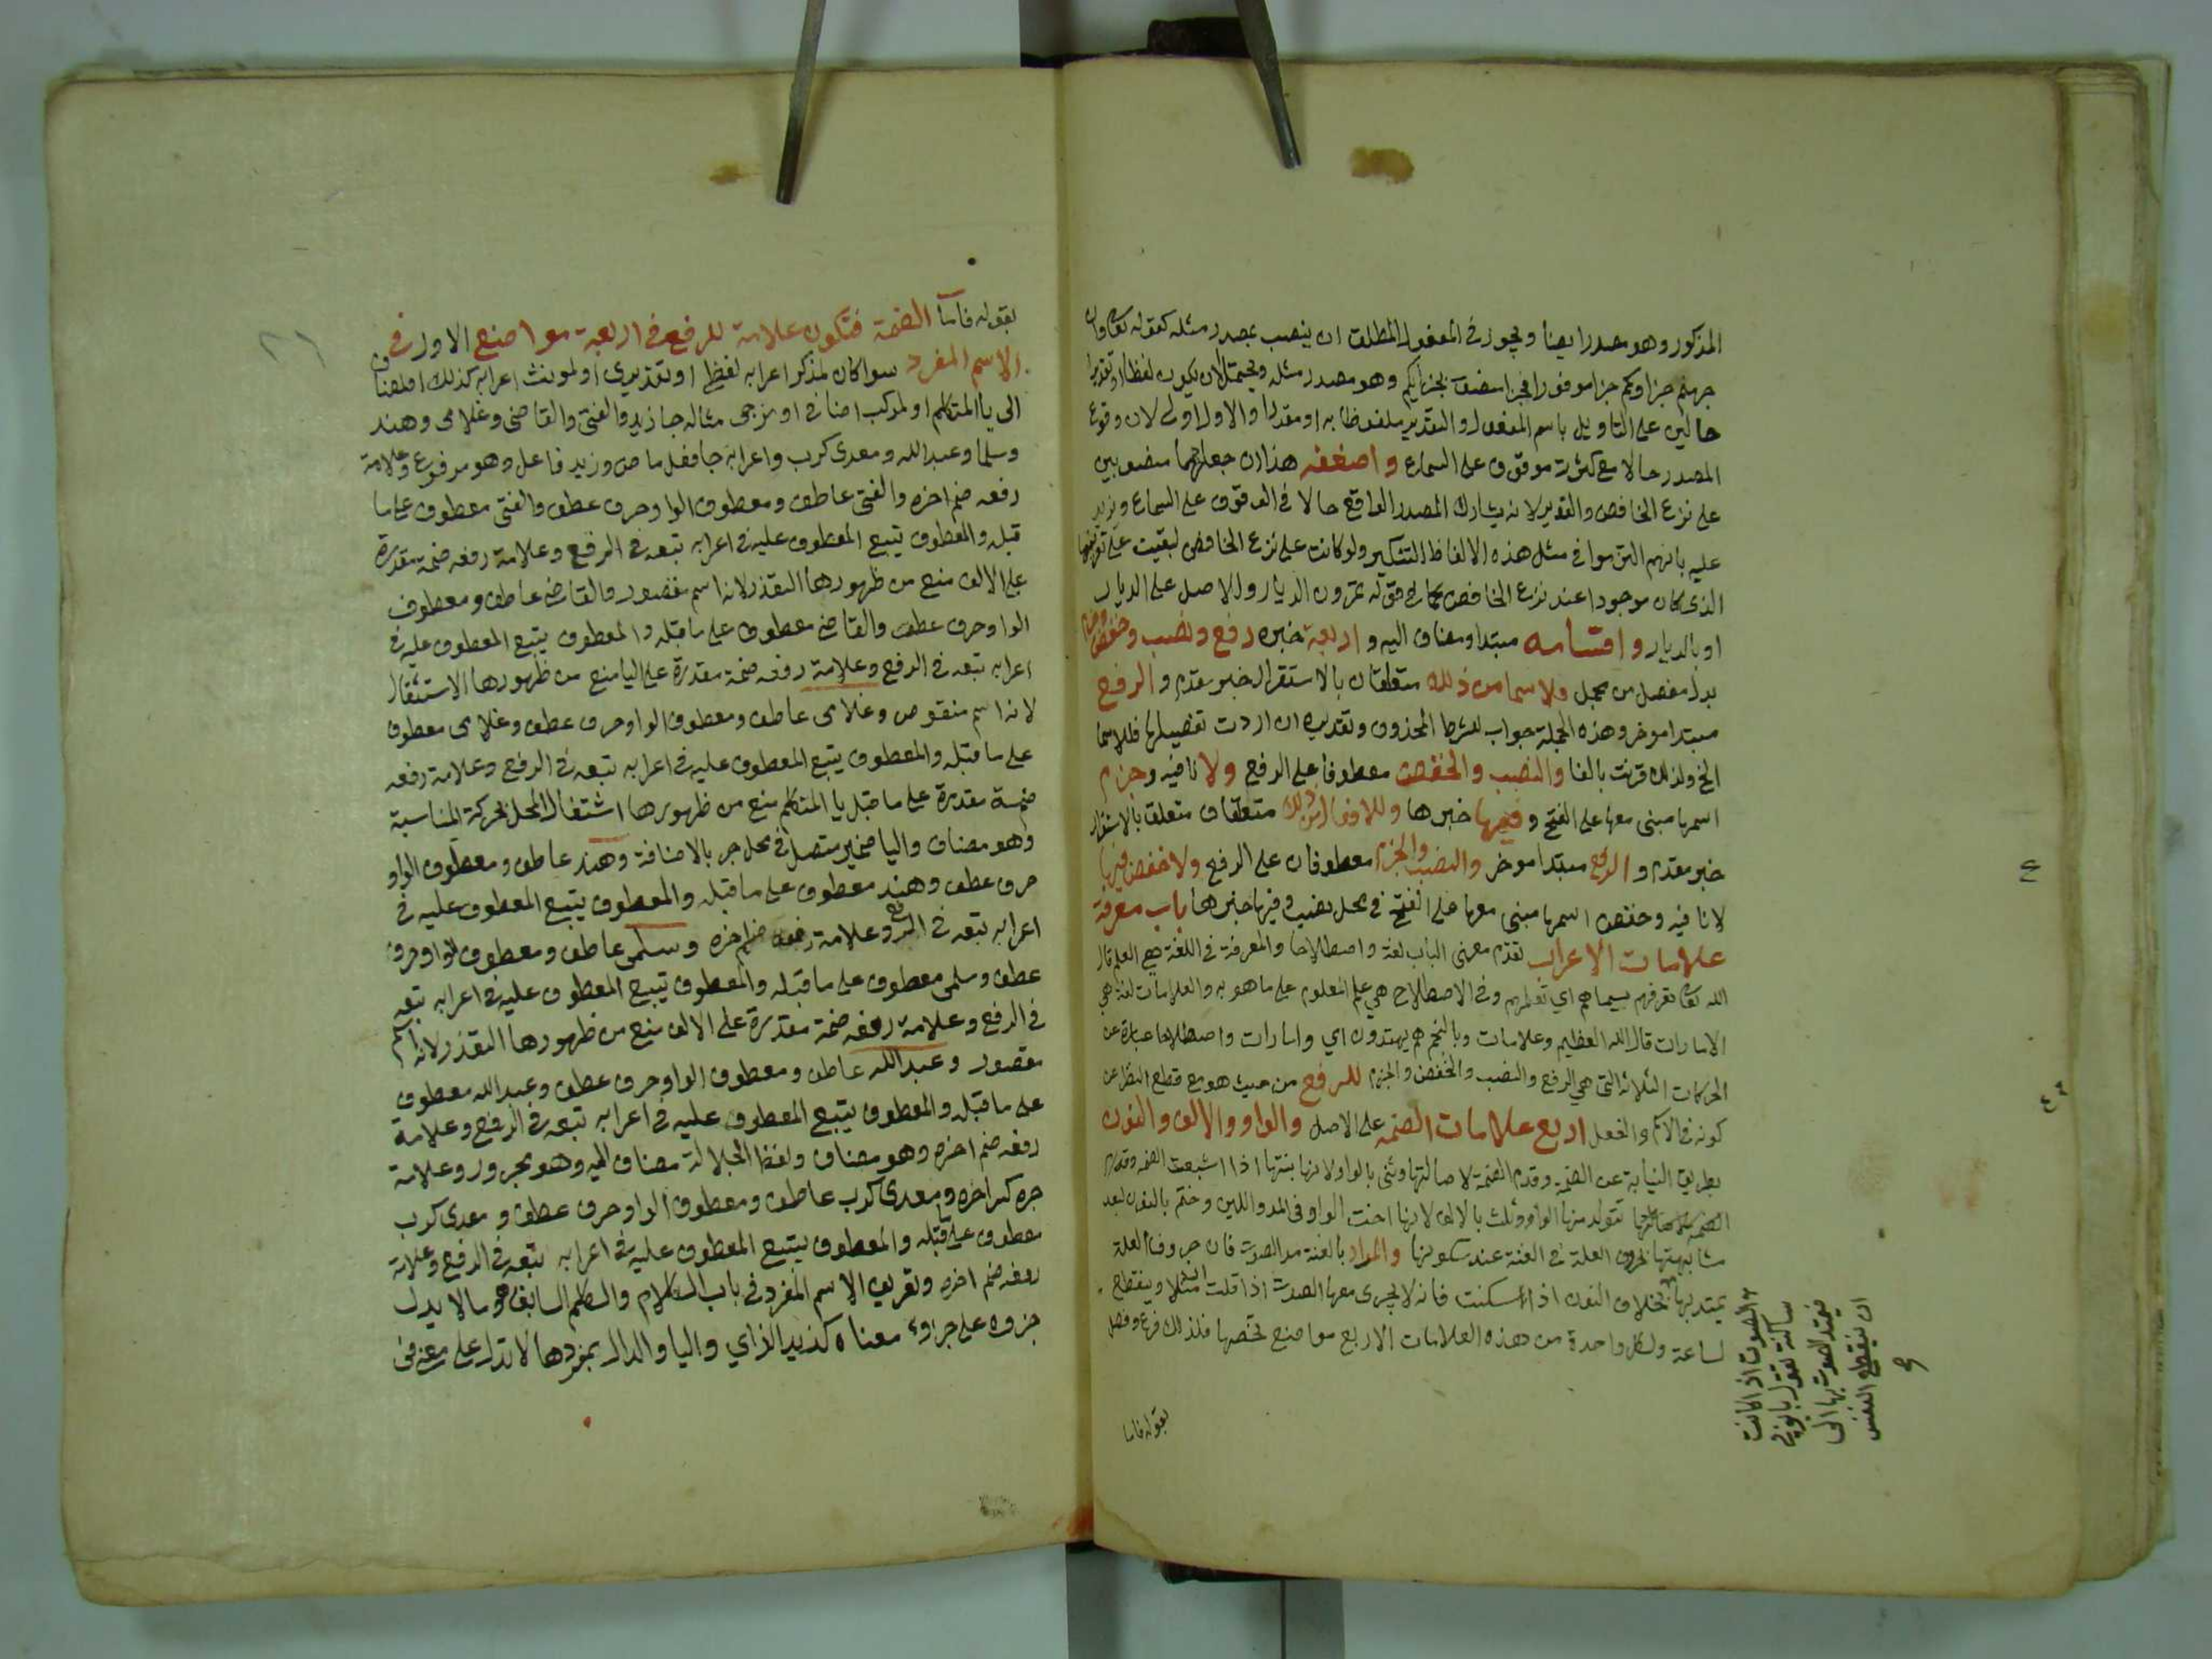 المذكور وهو مصدر ايضا ويجوز في المفعول المطلق ان ينصب بمصدر مثله كقوله تعالى فان
جهنم جزاوكم جزا موفورا فجزا منصوب بجزايكم وهو مصدر مثله ويحتمل ان يكون لفظا او تقديرا
حالين على التاويل باسم المفعول والتقدير ملفوظا به او مقدرا والاول اولى لان وقوع
المصدر حالا مع كثرته موقوف على السماع واضعفه هذا ان جعلتهما منصوبين
على نزع الخافض والتقدير لانه يشارك المصدر الواقع حالا في الوقوف على السماع ويزيد
عليه بانهم التزموا في مثل هذه الالفاظ التنكير ولو كانت على نزع الخافض لبقيت على تعريفها
الذي كان موجودا عند نزع الخافض كما في قوله تمرون الديار والاصل على الديار
او بالديار واقسامه مبتدا ومضاف اليه واربعة خبره رفع ونصب وخفض وجزم
بدل مفصل من مجمل فللاسما من ذلك متعلقان بالاستقرار خبر مقدم والرفع
مبتدا موخر وهذه الجملة جواب لشرط المحذوف وتقديره ان اردت تفصيلها فللاسما
الخ ولذلك قرنت بالفا والنصب والخفض معطوفان على الرفع ولا نافية وجزم
اسمها مبني معها على الفتح وفيها خبرها وللافعال من ذلك متعلقان متعلق بالاستقرار
خبر مقدم والرفع مبتدا موخر والنصب والجزم معطوفان على الرفع ولا خفض فيها
لا نافية وخفض اسمها مبني معها على الفتح في محل نصب وفيها خبرها باب معرفة
علامات الاعراب تقدم معنى الباب لغة واصطلاحا والمعرفة في اللغة هي العلم قال
الله تعالى تعرفهم بسيماهم اي تعلمهم وفي الاصطلاح هي علم المعلوم على ما هو به والعلامات لغة هي
الامارات قال الله العظيم وعلامات وبالنجم هم يهتدون اي وامارات واصطلاحا عبارة عن
الحركات الثلاثة التي هي الرفع والنصب والخفض والجزم للرفع من حيث هو مع قطع النظر عن
كونه في الاسم والفعل اربع علامات الضمه على الاصل والواو والالف والنون
بطريق النيابة عن الضمة وقدم الضمة لاصالتها وثنى بالواو لانها بنتها اذا اشبعت الضمة
تتولد منها الواو وثلث بالالف لانها اخت الواو في المد واللين وختم بالنون لبعد
مشابهتها لحروف العلة في الغنة عند سكونها والمراد بالغنة مد الصوت فان حروف العلة
يمتد بها بخلاف النون اذا سكنت فانه لا يجرى معها الصوت اذا قلت مثلا وينقطع
لساعة ولكل واحدة من هذه العلامات الاربع مواضع تختصها فلذلك فرع وفصل
الصوت اذا كانت
ساكنة تقول
فيمتد الصوت بها الى
ان ينقطع النفس
بقوله فاما
بقوله فاما الضمة فتكون علامة للرفع في اربعة مواضع الاول في
الاسم المفرد سوا كان لمذكر اعرابه لفظي او تقديري او لمونث اعرابه كذلك او لمضاف
الى يا المتكلم او لمركب اضافي او مزجي مثاله جا زيد والفتى والقاضي وغلامي وهند
وسلما وعبدالله ومعدي كرب واعرابه جا فعل ماض وزيد فاعل وهو مرفوع وعلامة
رفعه ضم اخره والفتى عاطف ومعطوف الواو حرف عطف والفتى معطوف على ما
قبله والمعطوف يتبع المعطوف عليه في اعرابه تبعه في الرفع وعلامة رفعه ضمة مقدرة
على الالف منع من ظهورها التعذر لانه اسم مقصور والقاضي عاطف ومعطوف
الواو حرف عطف والقاضي معطوف على ما قبله والمعطوف يتبع المعطوف عليه في
اعرابه تبعه في الرفع وعلامة رفعه ضمة مقدرة على اليا منع من ظهورها الاستثقال
لانه اسم منقوص وغلامي عاطف ومعطوف الواو حرف عطف وغلامي معطوف
على ما قبله والمعطوف يتبع المعطوف عليه في اعرابه تبعه في الرفع وعلامة رفعه
ضمة مقدرة على ما قبل يا المتكلم منع من ظهورها اشتغال المحل بحركة المناسبة
وهو مضاف واليا ضمير متصل في محل جر بالاضافة وهند عاطف ومعطوف الواو
حرف عطف وهند معطوف على ما قبله والمعطوف يتبع المعطوف عليه في
اعرابه تبعه في الرفع وعلامة رفعه ضم اخره وسلمى عاطف ومعطوف الواو حرف
عطف وسلمى معطوف على ما قبله والمعطوف يتبع المعطوف عليه في اعرابه تبعه
في الرفع وعلامة رفعه ضمة مقدرة على الالف منع من ظهورها التعذر لانه اسم
مقصور وعبدالله عاطف ومعطوف الواو حرف عطف وعبد الله معطوف
على ما قبله والمعطوف يتبع المعطوف عليه في اعرابه تبعه في الرفع وعلامة
رفعه ضم اخره وهو مضاف ولفظ الجلالة مضاف اليه وهو مجرور وعلامة
جره كسر اخره ومعدي كرب عاطف ومعطوف الواو حرف عطف ومعدي كرب
معطوف على ما قبله والمعطوف يتبع المعطوف عليه في اعرابه تبعه في الرفع وعلامة
رفعه ضم اخره وتعريف الاسم المفرد في باب الكلام والكلم السابق هو ما لا يدل
جزوه على جزوء معناه كزيد الزاي واليا والدال بمفردها لا تدل على معنى في